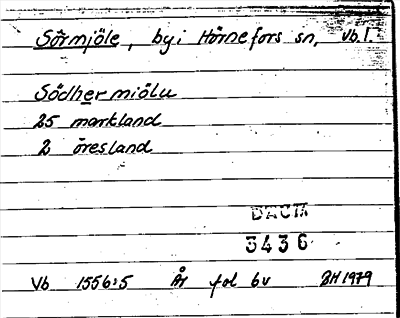 Sörmjöle, by i Hörnefors sn, Vb.l.
Södhermiölu
25 markland
2 öresland
DACTA
3436
Vb 1556:5 År fol 6v BH 1979